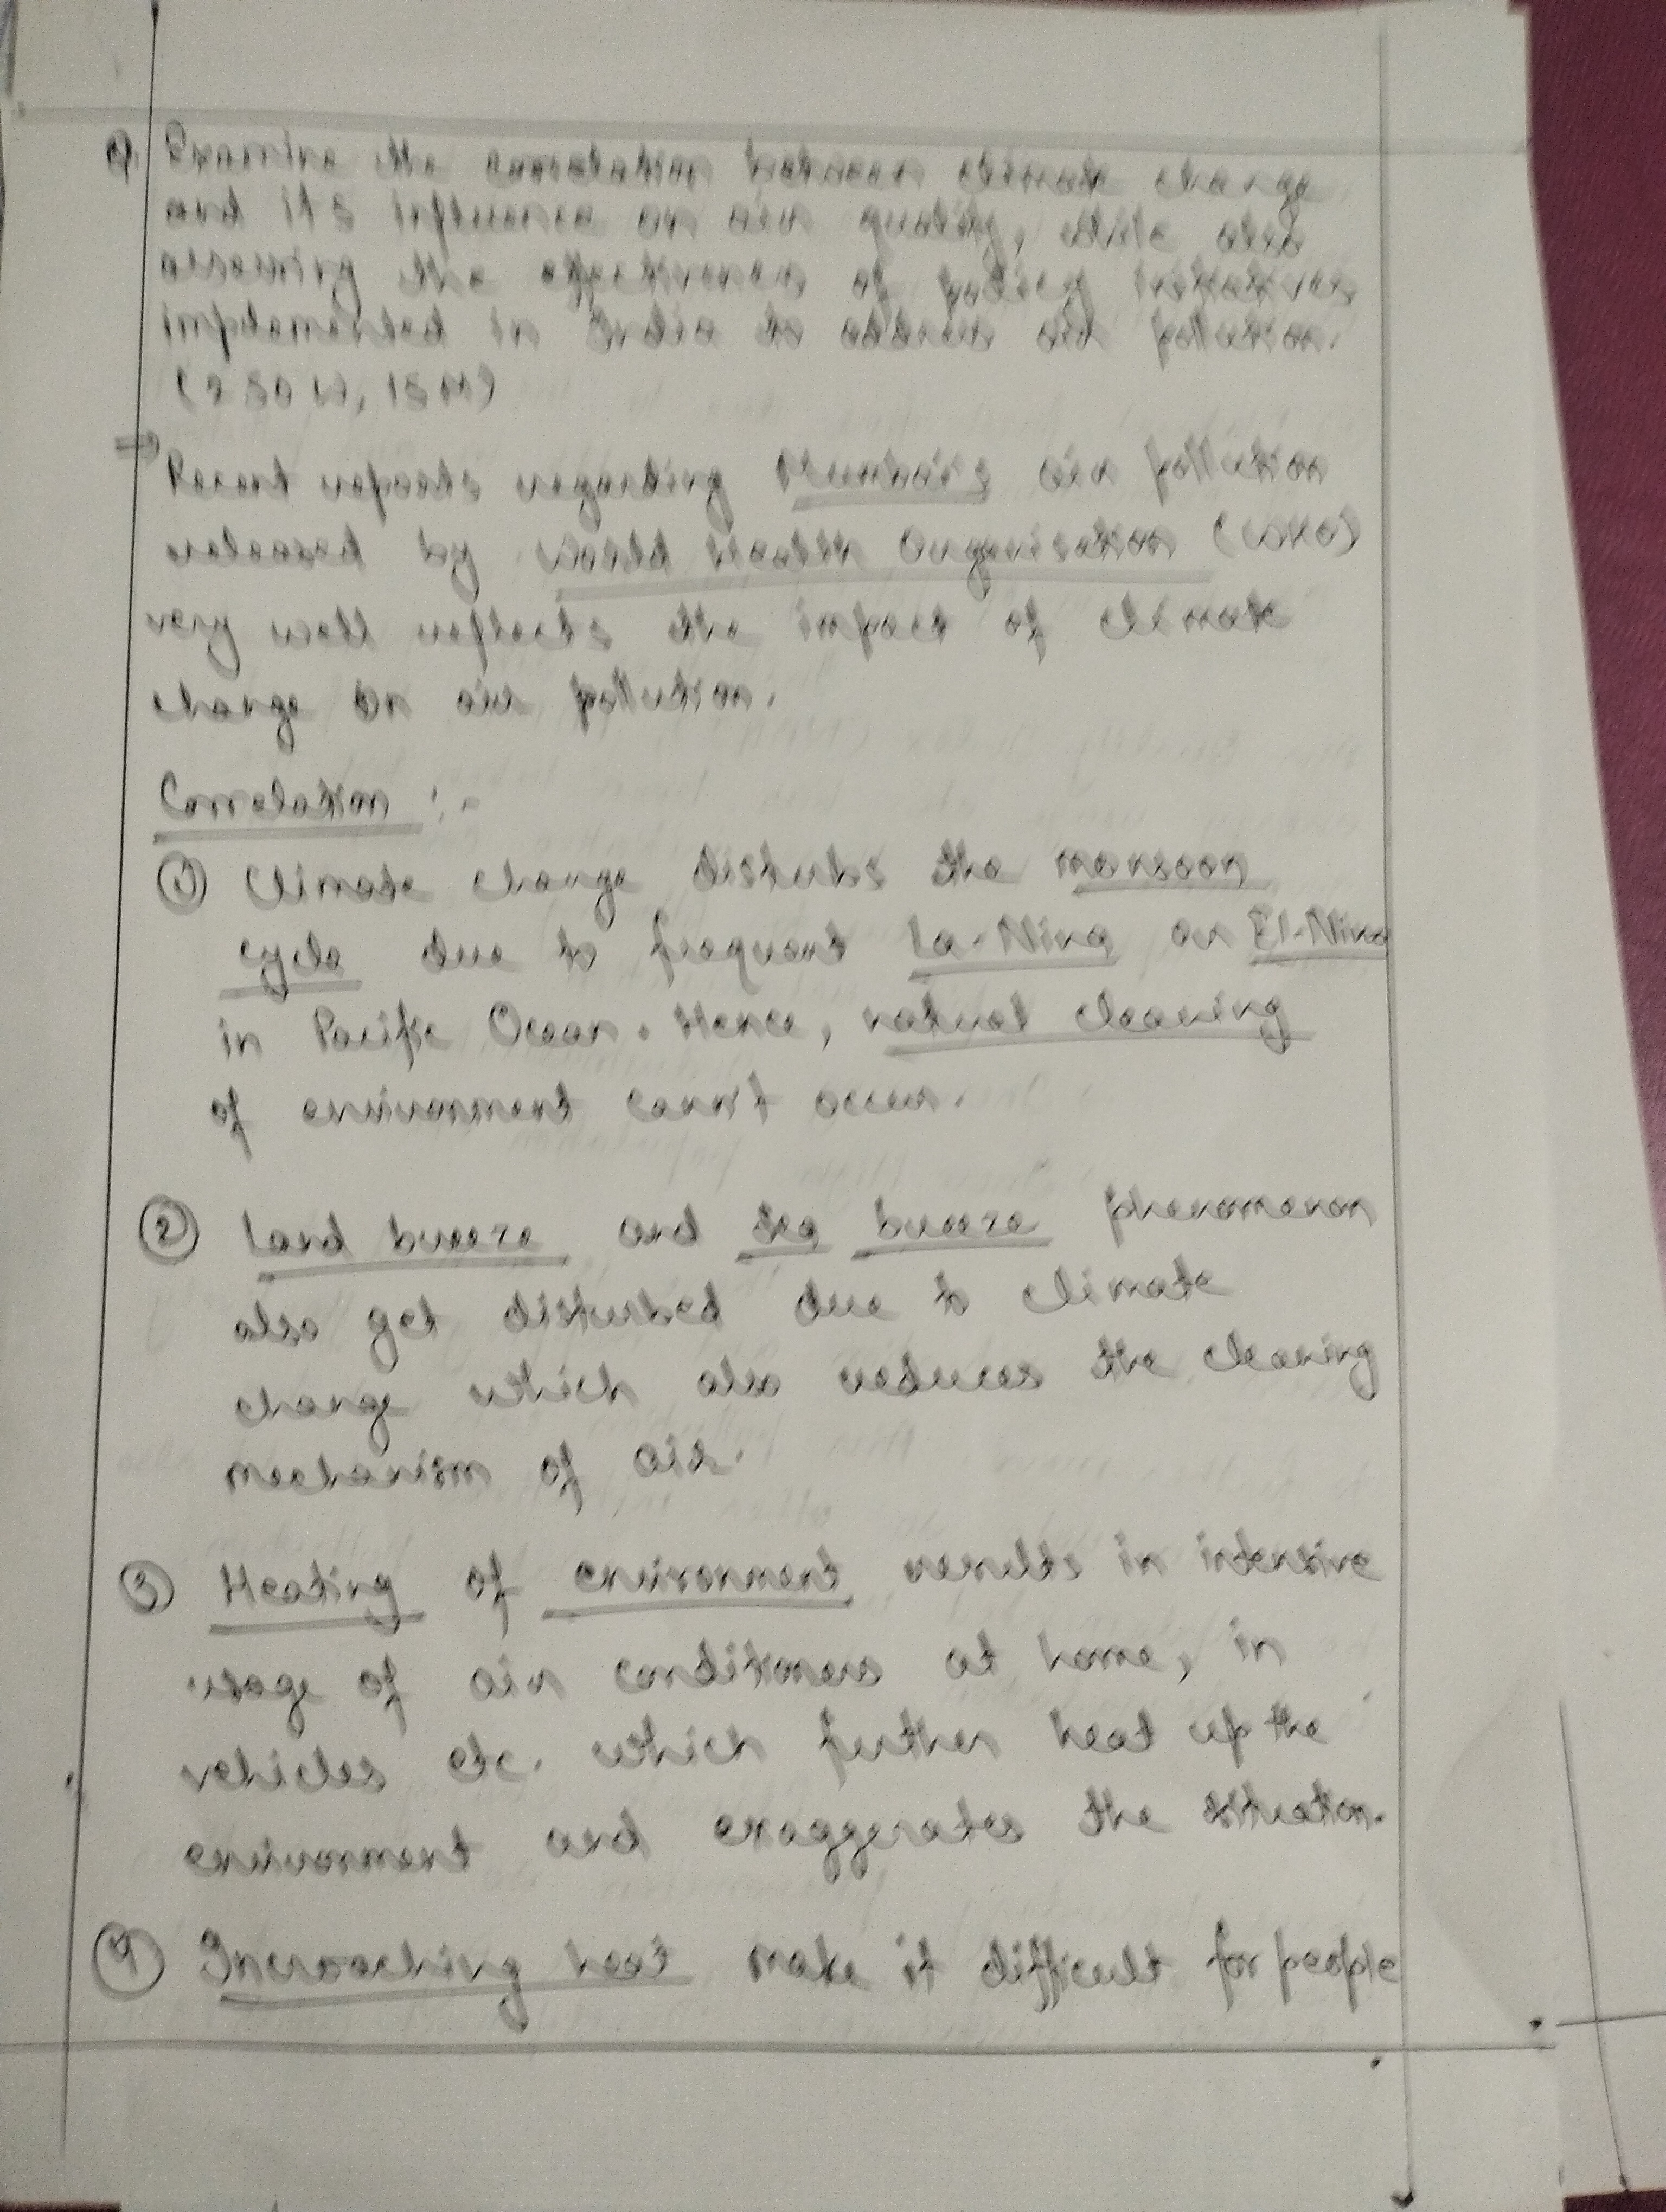 Q. Examine the correlation between climate change
and its influence on air quality, while also
assessing the effectiveness of policy initiatives
implemented in India to address air pollution.
(250 W, 15M)
⇒ Recent reports regarding Mumbai's air pollution
released by World Health Organisation (WHO)
very well reflects the impact of climate
change on air pollution.
Correlation :-
① Climate change disturbs the monsoon
cycle due to frequent La-Nina or El-Nino
in Pacific Ocean. Hence, natual cleaning
of environment cann't occur.
② Land breeze and sea breeze phenomenon
also get disturbed due to climate
change which also reduces the cleaning
mechanism of air.
③ Heating of environment results in intensive
usage of air conditioners at home, in
vehicles etc. which further heat up the
environment and exaggerates the situation.
④ Incroaching heat make it difficult for people